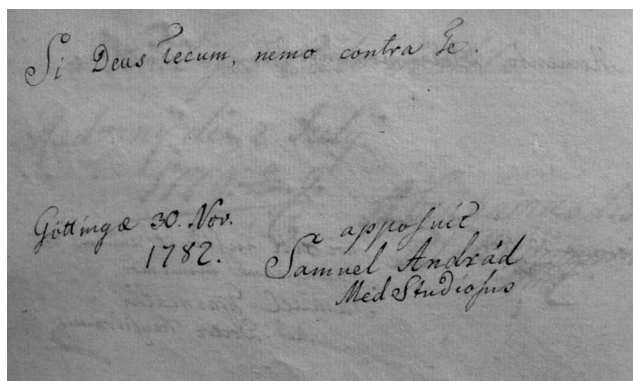 Si Deus Tecum, nemo contra Te.
Göttingæ 30. Nov.
1782.
apposuit
Samuel Andrád
Med Studiosus